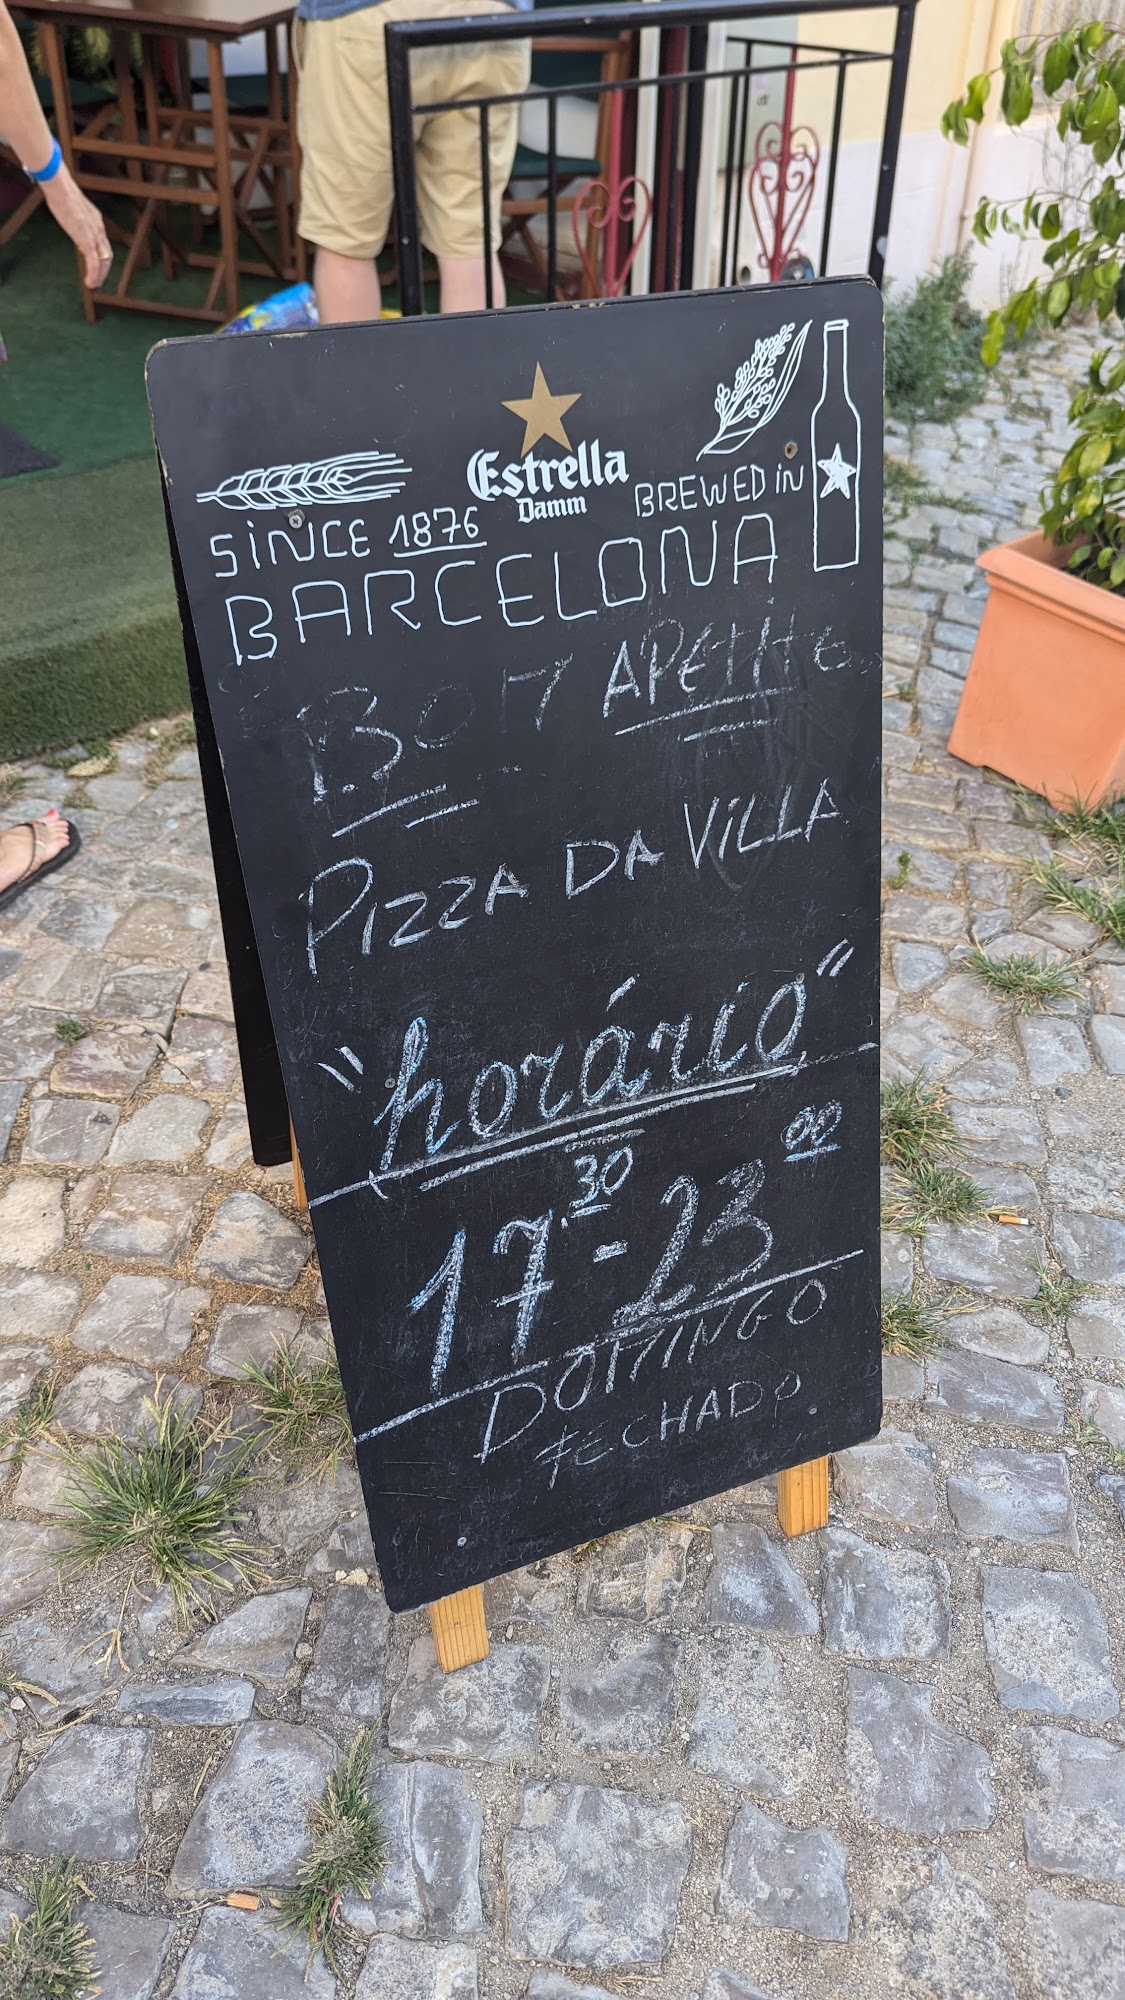 Estrella
Damm
SINCE 1876
BREWED IN
BARCELONA
BOM APETITE
PIZZA DA VILLA
"horário"
17.30 - 23 00
DOMINGO
FECHADO